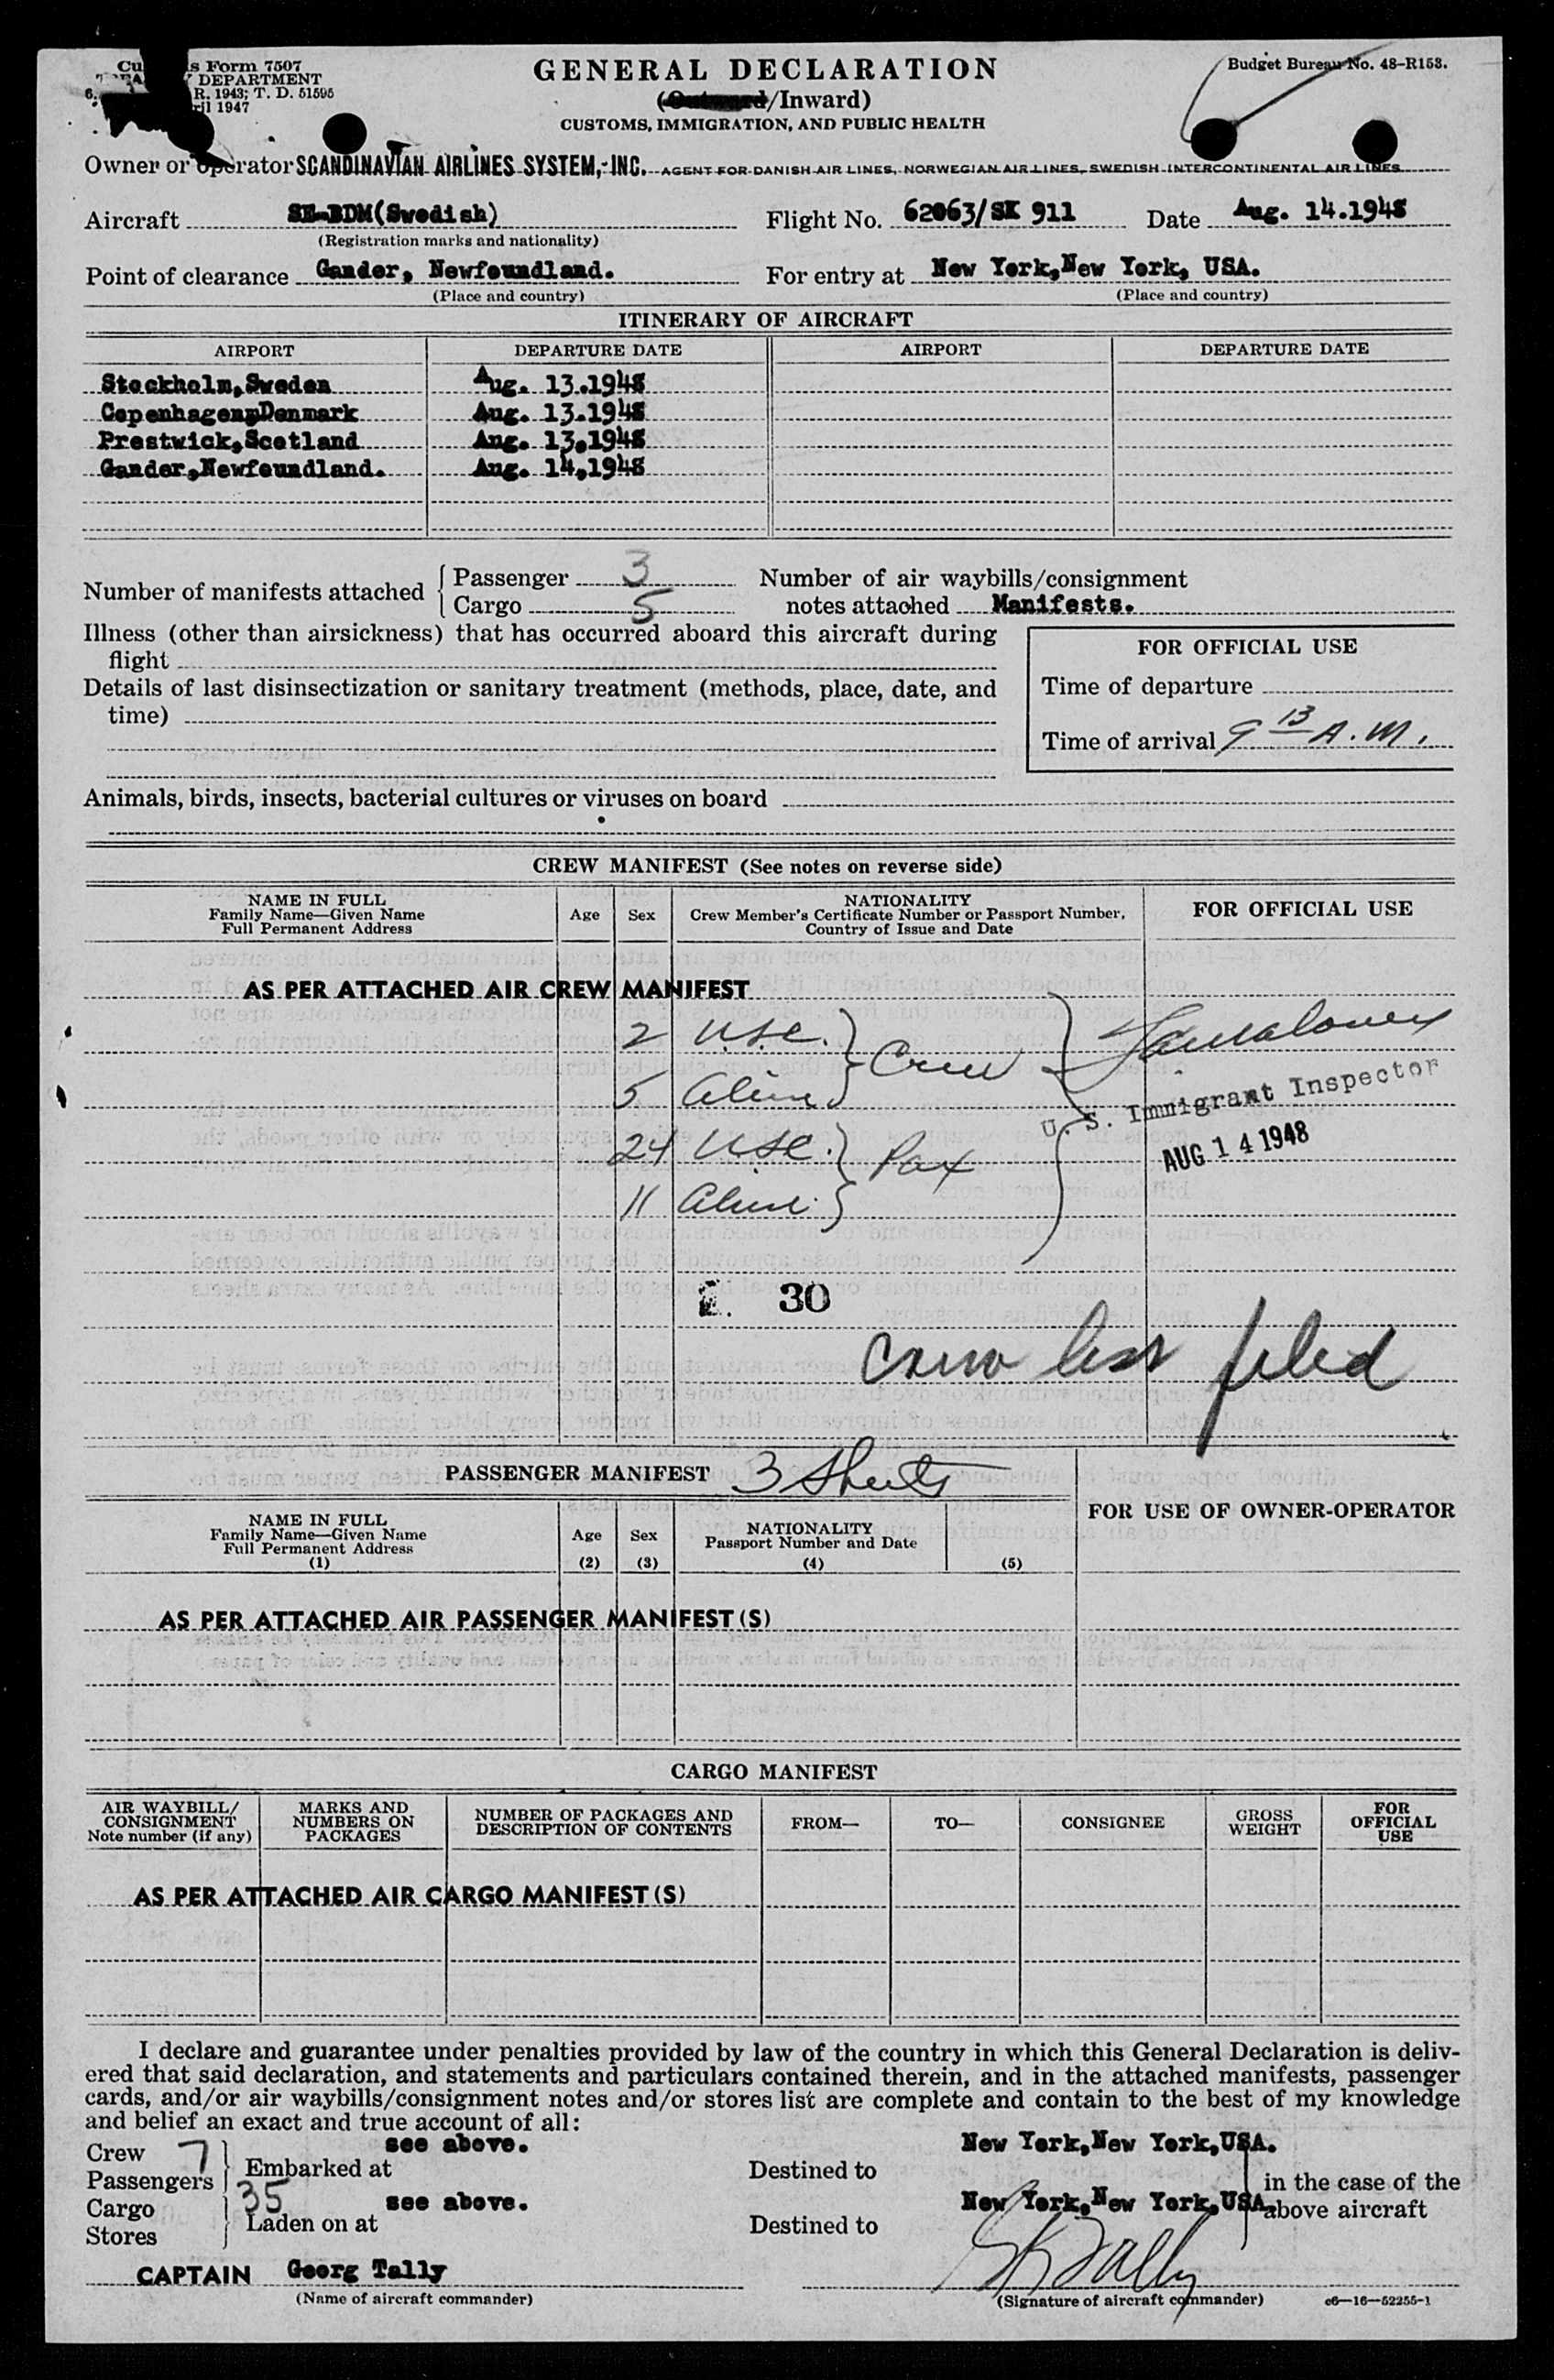 Customs Form 7507
TREASURY DEPARTMENT
R. 1943; T. D. 51595
April 1947
GENERAL DECLARATION
(Outward/Inward)
CUSTOMS, IMMIGRATION, AND PUBLIC HEALTH
Budget Bureau No. 48-R153.
Owner or operator SCANDINAVIAN AIRLINES SYSTEM, INC. AGENT FOR DANISH AIR LINES, NORWEGIAN AIR LINES, SWEDISH INTERCONTINENTAL AIR LINES
Aircraft SE-BDM(Swedish) Flight No. 62063/SK 911 Date Aug. 14.1948
(Registration marks and nationality)
Point of clearance Gander, Newfoundland. For entry at New York, New York, USA.
(Place and country) (Place and country)
ITINERARY OF AIRCRAFT
AIRPORT DEPARTURE DATE AIRPORT DEPARTURE DATE
Stockholm,Sweden Aug. 13.1948
Copenhagen,Denmark Aug. 13.1948
Prestwick,Scotland Aug. 13,1948
Gander,Newfoundland. Aug. 14,1948
Number of manifests attached { Passenger 3 Number of air waybills/consignment
Cargo 5 notes attached Manifests.
Illness (other than airsickness) that has occurred aboard this aircraft during
flight
Details of last disinsectization or sanitary treatment (methods, place, date, and
time)
FOR OFFICIAL USE
Time of departure
Time of arrival 9 13 A.M.
Animals, birds, insects, bacterial cultures or viruses on board
CREW MANIFEST (See notes on reverse side)
NAME IN FULL
Family Name—Given Name
Full Permanent Address
Age
Sex
NATIONALITY
Crew Member's Certificate Number or Passport Number,
Country of Issue and Date
FOR OFFICIAL USE
AS PER ATTACHED AIR CREW MANIFEST
2 USC. } Crew
5 Aliens
24 USC. } Pax
11 Aliens
U. S. Immigrant Inspector
AUG 14 1948
30
Crew list filed
PASSENGER MANIFEST 3 Sheets
NAME IN FULL
Family Name—Given Name
Full Permanent Address
(1)
Age
(2)
Sex
(3)
NATIONALITY
Passport Number and Date
(4)
(5)
FOR USE OF OWNER-OPERATOR
AS PER ATTACHED AIR PASSENGER MANIFEST (S)
CARGO MANIFEST
AIR WAYBILL/
CONSIGNMENT
Note number (if any)
MARKS AND
NUMBERS ON
PACKAGES
NUMBER OF PACKAGES AND
DESCRIPTION OF CONTENTS
FROM—
TO—
CONSIGNEE
GROSS
WEIGHT
FOR
OFFICIAL
USE
AS PER ATTACHED AIR CARGO MANIFEST (S)
I declare and guarantee under penalties provided by law of the country in which this General Declaration is deliv-
ered that said declaration, and statements and particulars contained therein, and in the attached manifests, passenger
cards, and/or air waybills/consignment notes and/or stores list are complete and contain to the best of my knowledge
and belief an exact and true account of all:
Crew 7 see above. New York,New York,USA.
Passengers 35 } Embarked at Destined to in the case of the
Cargo see above. New York,New York,USA. above aircraft
Stores } Laden on at Destined to
CAPTAIN Georg Tally GK Tally
(Name of aircraft commander) (Signature of aircraft commander) c6—16—52255-1